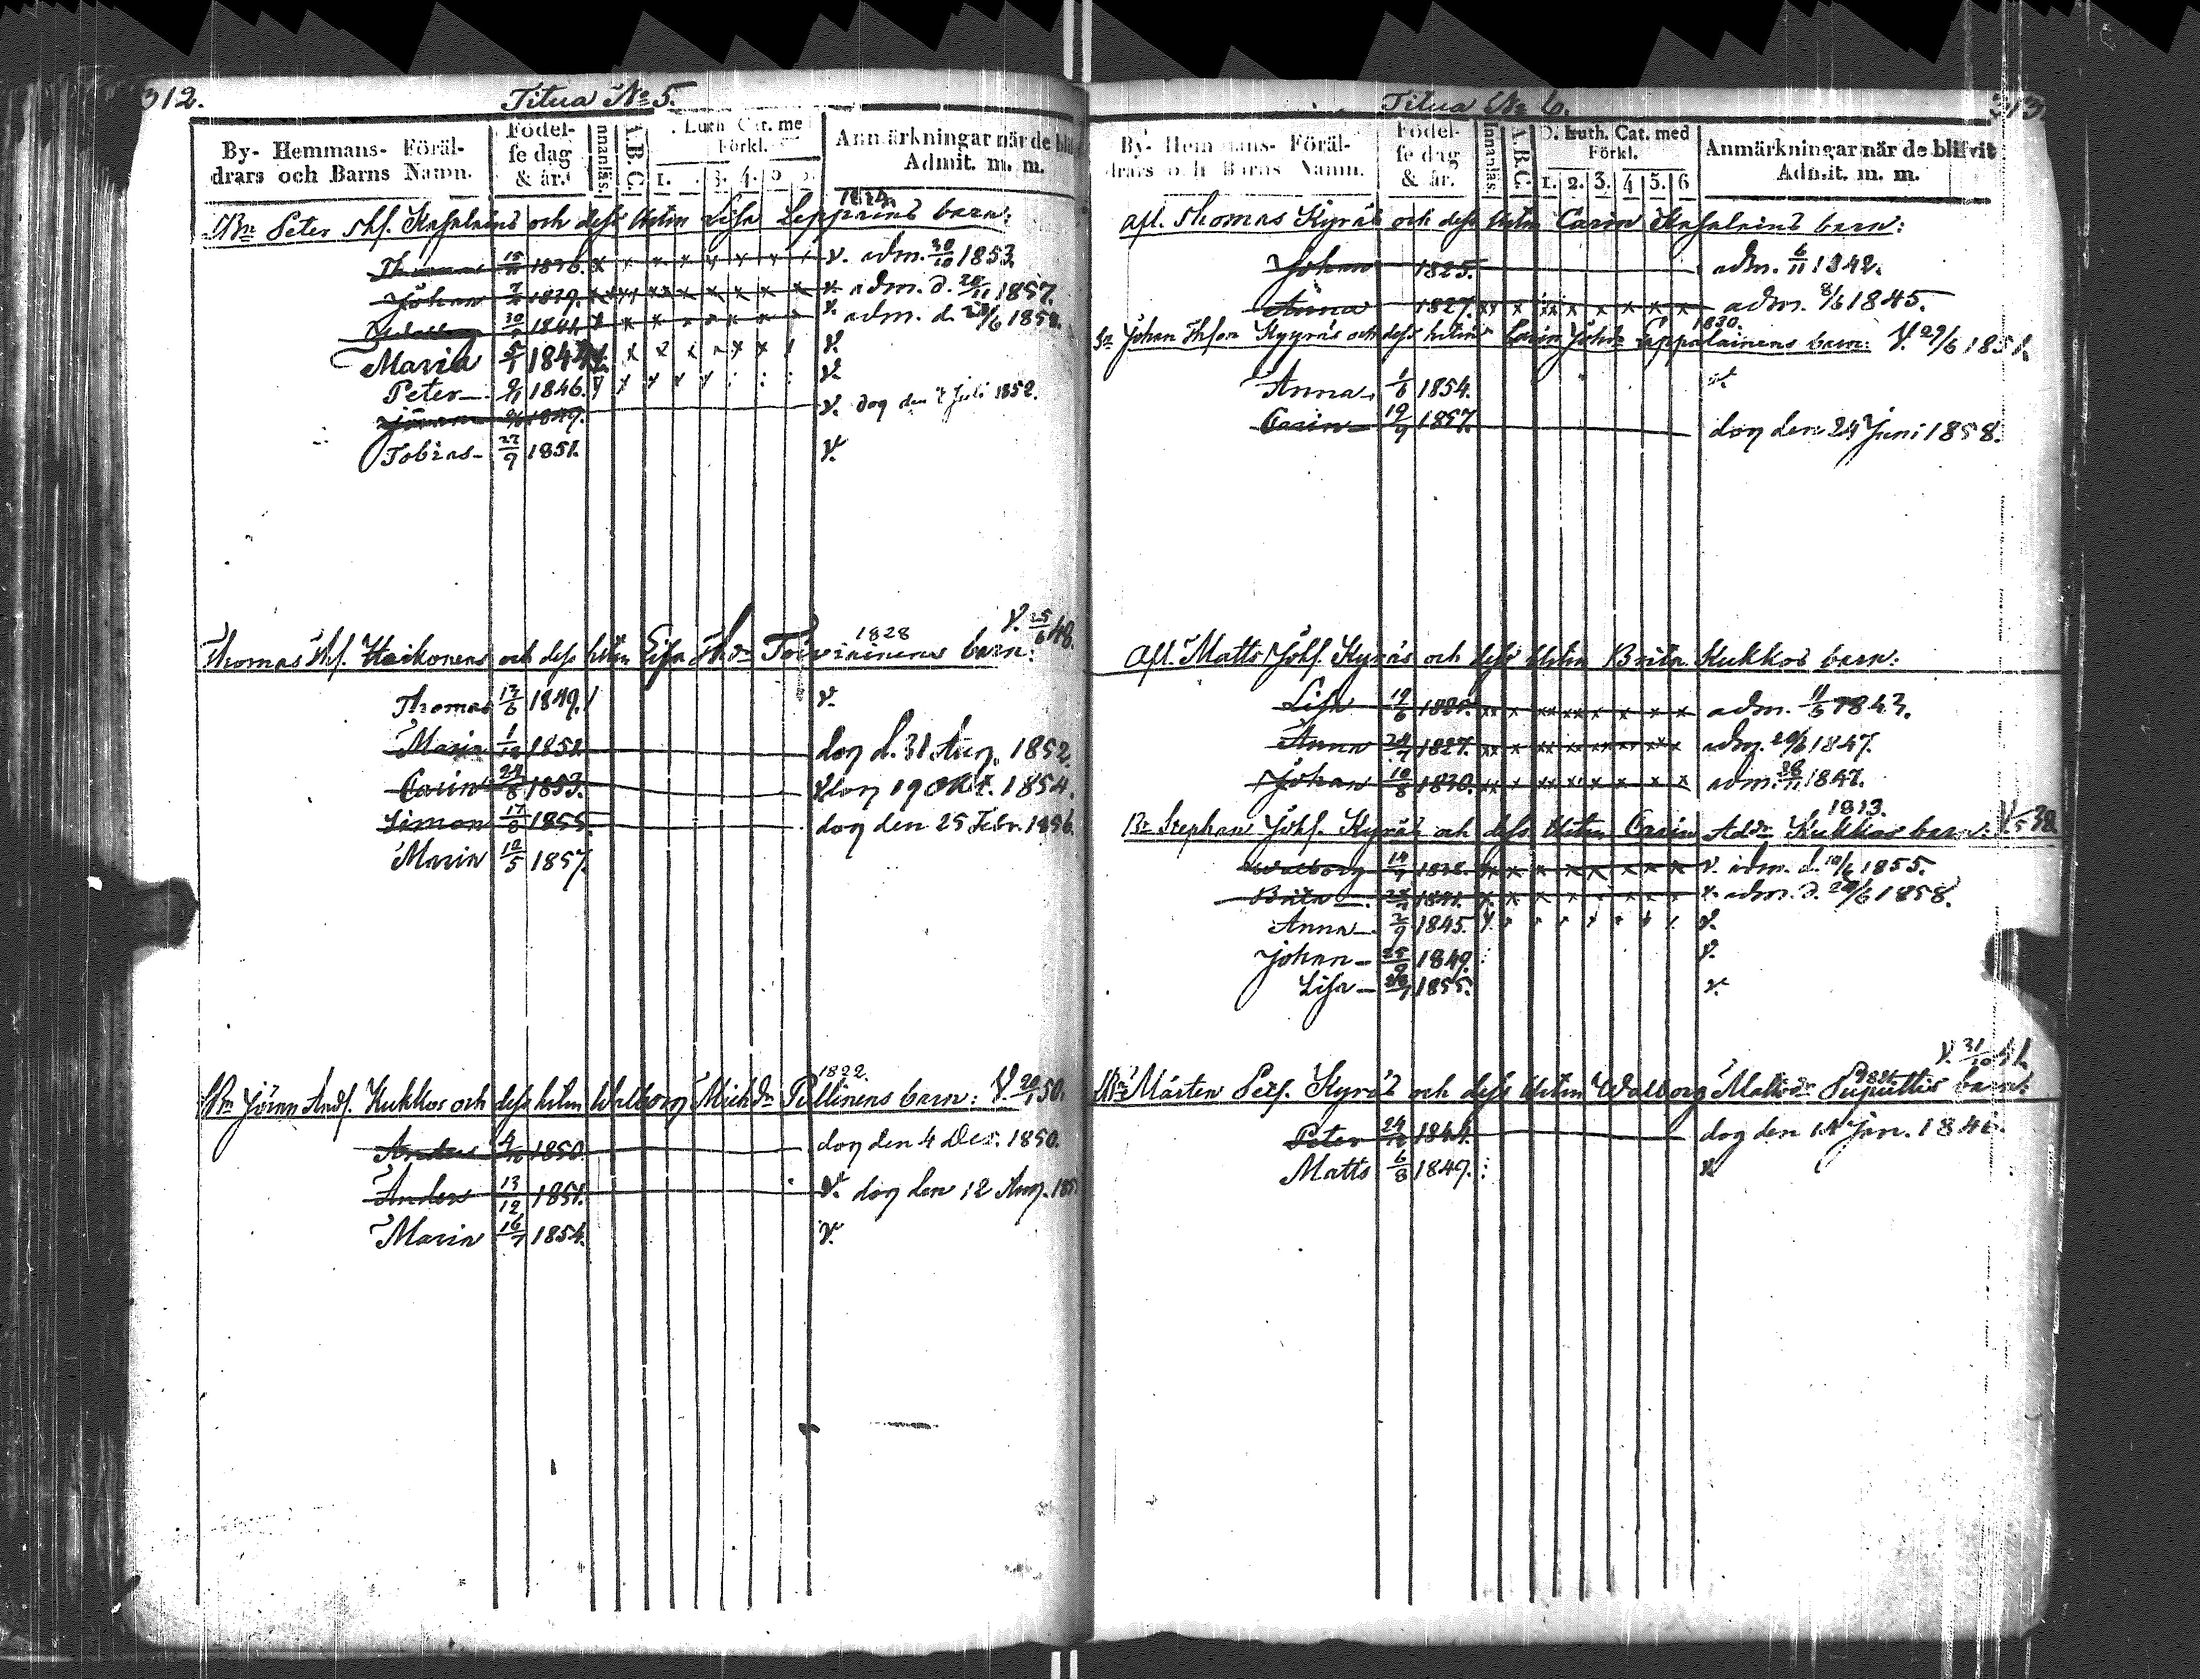 312.
Titua No 5.
By- Hemmans- Föräl-
drars och Barns Namn.
Födel-
se dag
& år.
A.B.C.
Luth. Cat. me
Förkl.
1. 3. 4.
Anmärkningar när de bli
Admit. m. m.
Peter och dess hstru Lisa barn:
Thomas 1836. v. adm. 30/10 1853.
Johan 1839. v. adm. d. 20/11 1857.
30 1841. v. adm. d. 1858.
Maria 5/1 1844. v.
Peter 1846. v.
1849. v. dog den Juli 1852.
Tobias 27/9 1851. v.
V. 25/6 48.
1828
Thomas Thf. Haikonens och dess hstru Lisa Thdr Toiviainens barn:
Thomas 13/6 1849. v.
Maria 1852. dog d. 31 Aug. 1852.
Carin 24/8 1853. v. dog 19 Okt. 1854.
Simon 17/8 1855. dog den 25 Febr. 1856.
Maria 12/5 1857.
1822.
Jöran Andf. Kukkos och dess hstru Walborg Michdr Pullinens barn: V. 50.
Anders 1850. dog den 4 Dec. 1850.
Anders 13/12 1851. v. dog den 12 Aug.
Maria 16/7 1854. v.
313.
Titua No 6.
By- Hemmans- Föräl-
drars och Barns Namn.
Födel-
se dag
& år.
Innanläs.
A.B.C.
D. Luth. Cat. med
Förkl.
1. 2. 3. 4 5. 6
Anmärkningar när de blifvit
Admit. m. m.
Afl. Thomas Kyräs och dess hstru Carin barn:
Johan 1825. adm. 6/11 1842.
Anna 1827. adm. 8/6 1845.
1830.
Johan Kyyräs och dess hstrus Carin Johdr Lappalainens barn: V. 29/6 1851.
Anna 1/6 1854. v.
Carin 19/9 1857. dog den 24 Juni 1858.
Afl. Matts Johf. Kyräs och dess hstru Brita Kukkos barn:
Lisa adm. 1843.
Anna 1827. adm. 1847.
Johan 10/8 1830. adm. 1847.
1813.
Stephan Johf. Kyräs och dess hstru Carin Addr Kukkos barn: V. 38
Walborg 1838. v. adm. d. 10/6 1855.
Brita 1841. v. adm. d. 20/6 1858.
Anna 2/9 1845. v.
Johan 25/9 1849. v.
Lisa 1855. v.
V. 31 41.
Mårten Petf. Kyräs och dess hstru Walborg Mattsdr barn:
Peter 1844. dog den 14 Jan. 1846.
Matts 6/8 1847. v.